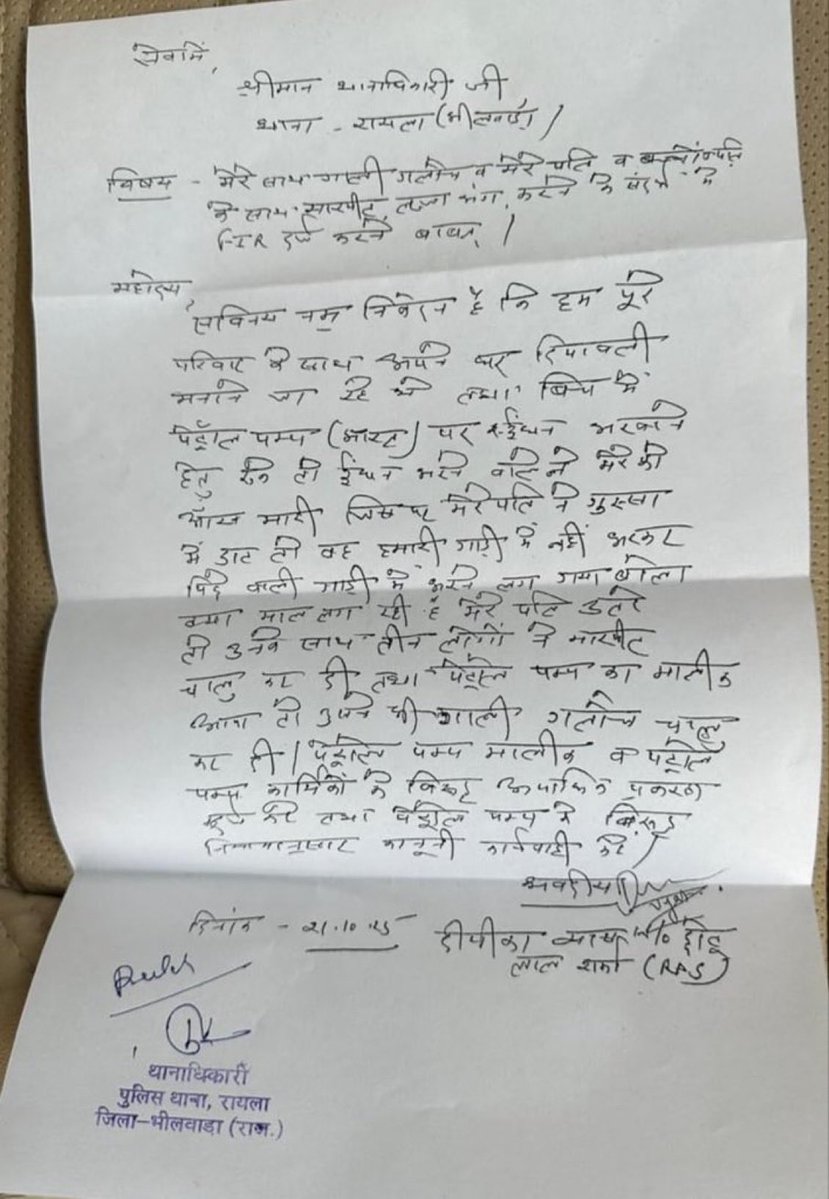 सेवामें,
श्रीमान थानाधिकारी जी
थाना - रायला (भीलवाड़ा) /
विषय - मेरे साथ गाली गलोच व मेरे पति व
के साथ मारपीट, लज्जा भंग करने के संदर्भ में
FIR दर्ज करने बाबत् /
महोदय,
सविनय नम्र निवेदन है कि हम पूरे
परिवार के साथ अपने घर दिपावली
मनाने जा रहे थे तथा बिच में
पेट्रोल पम्प (भारत) पर ईंधन भरवाने
हेतु रुके तो ईंधन भरने वाले ने मेरे को
आँख मारी जिस पर मेरे पति ने गुस्सा
में डाट तो वह हमारी गाड़ी में नहीं भरकर
पिछे वाली गाड़ी में भरने लग गया बोला
क्या माल लग रही है मेरे पति उतरे
तो उनके साथ तीन लोगों ने मारपीट
चालु कर दी तथा पेट्रोल पम्प का मालीक
आया तो उसने भी गाली गलोच चालु
कर दी / पेट्रोल पम्प मालीक व पेट्रोल
पम्प कार्मिकों के विरूद्ध अपराधिक प्रकरण
दर्ज करे तथा पेट्रोल पम्प के विरूद्ध
नियमानुसार कानूनी कार्यवाही करें /
भवदीया
दिनांक - 21.10.25 दीपिका व्यास W/o छोटू
लाल शर्मा (RAS)
थानाधिकारी
पुलिस थाना, रायला
जिला-भीलवाडा (राज.)